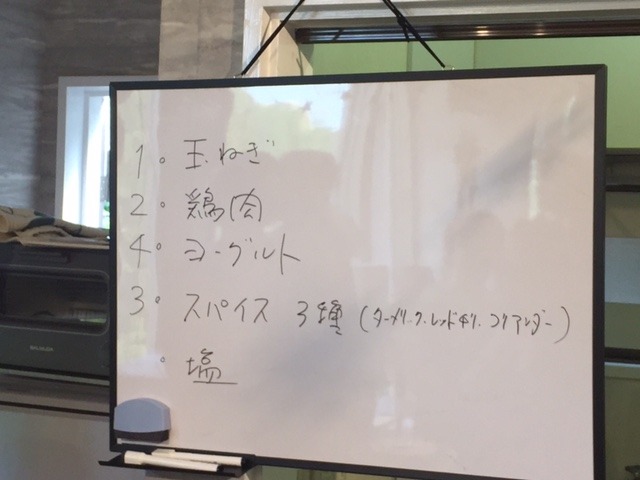 1。玉ねぎ
2。鶏肉
4。ヨーグルト
3。スパイス 3種 (ターメリック・レッドチリ・コリアンダー)
。塩
BALMUDA